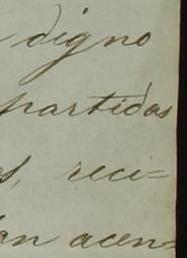 digno
partidas
s, reci=
an acen=